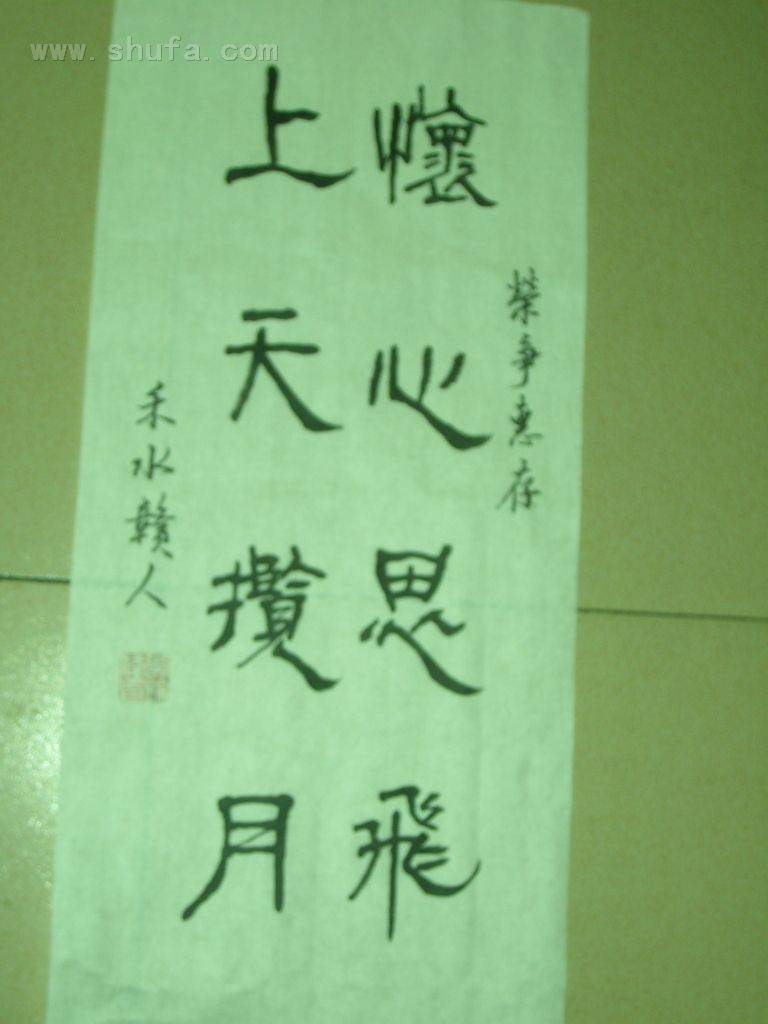 www.shufa.com
榮爭惠存
懷心思飛
上天攬月
禾水贛人